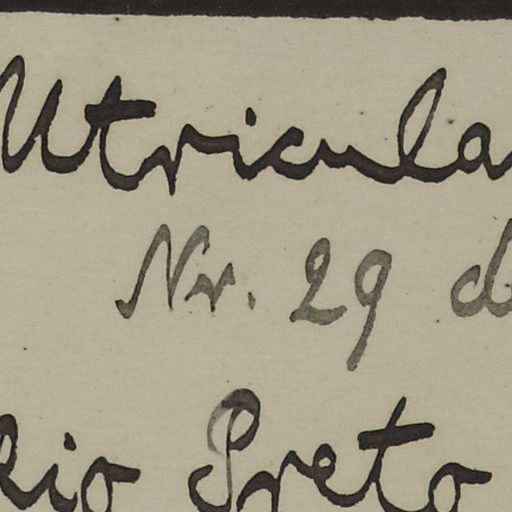 Utricula
Nr. 29 d
eio Preto